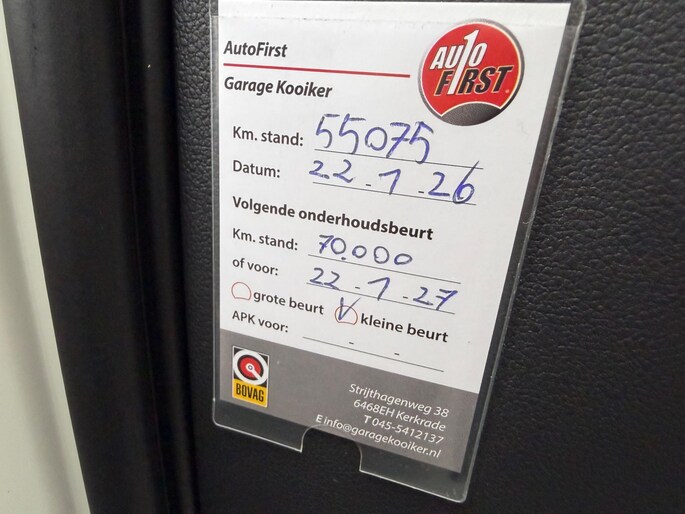 AutoFirst
AUTO
F1RST
Garage Kooiker
Km. stand: 55075
Datum: 22-1-26
Volgende onderhoudsbeurt
Km. stand: 70.000
of voor: 22-1-27
grote beurt kleine beurt
APK voor: - -
BOVAG
Strijthagenweg 38
6468EH Kerkrade
T 045-5412137
E info@garagekooiker.nl